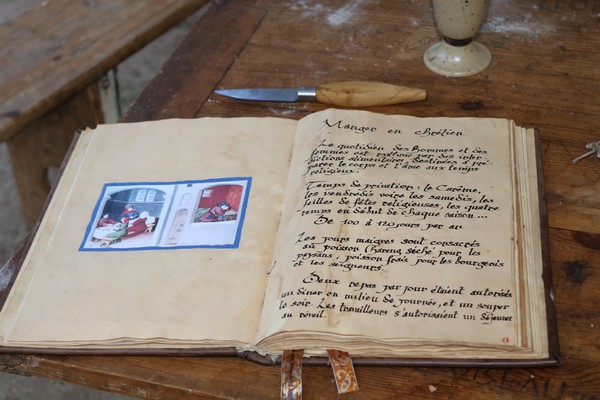 Manger en chrétien
Le quotidien des hommes et des
femmes est rythmé par des inter-
dictions alimentaires, destinées à pré-
parer le corps et l'âme aux temps
religieux.
Temps de privation : le Carême,
les vendredis voire les samedis, les
veilles de fêtes religieuses, les quatre
temps en début de chaque saison...
De 100 à 120 jours par an
Les jours maigres sont consacrés
au poisson (hareng séché pour les
paysans ; poisson frais pour les bourgeois
et les seigneurs.
Deux repas par jour étaient autorisés
un dîner en milieu de journée, et un souper
le soir. Les travailleurs s'autorisaient un déjeuner
au réveil.